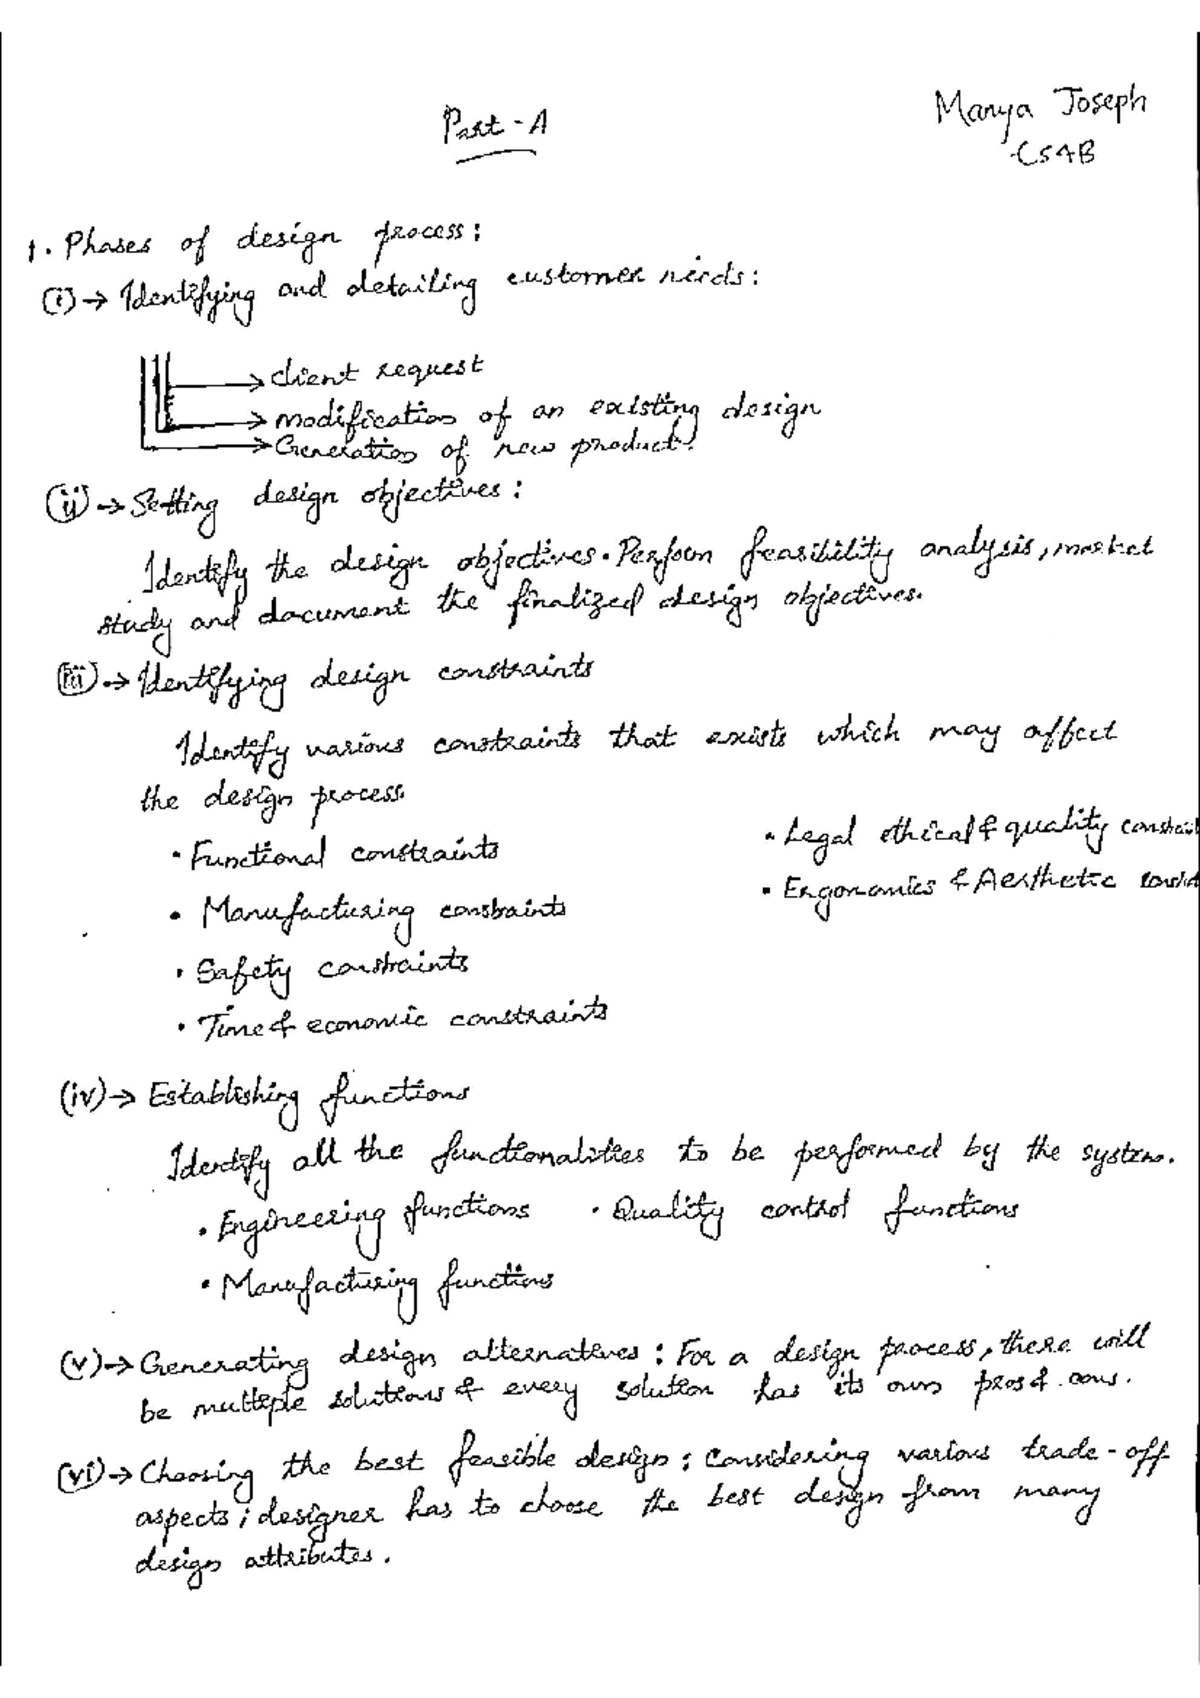 Part - A
Manya Joseph
CS4B
1. Phases of design process:
(i) → Identifying and detailing customer needs:
→ client request
→ modification of an existing design
→ Generation of new product.
(ii) → Setting design objectives:
Identify the design objectives. Perform feasibility analysis, market
study and document the finalized design objectives.
(iii) → Identifying design constraints
Identify various constraints that exists which may affect
the design process.
• Functional constraints
• Legal ethical & quality
• Manufacturing constraints
• Ergonomics & Aesthetic
• Safety constraints
• Time & economic constraints
(iv) → Establishing functions
Identify all the functionalities to be performed by the system.
• Engineering functions • Quality control functions
• Manufacturing functions
(v) → Generating design alternatives: For a design process, there will
be multiple solutions & every solution has its own pros & cons.
(vi) → Choosing the best feasible design: Considering various trade-off
aspects; designer has to choose the best design from many
design attributes.